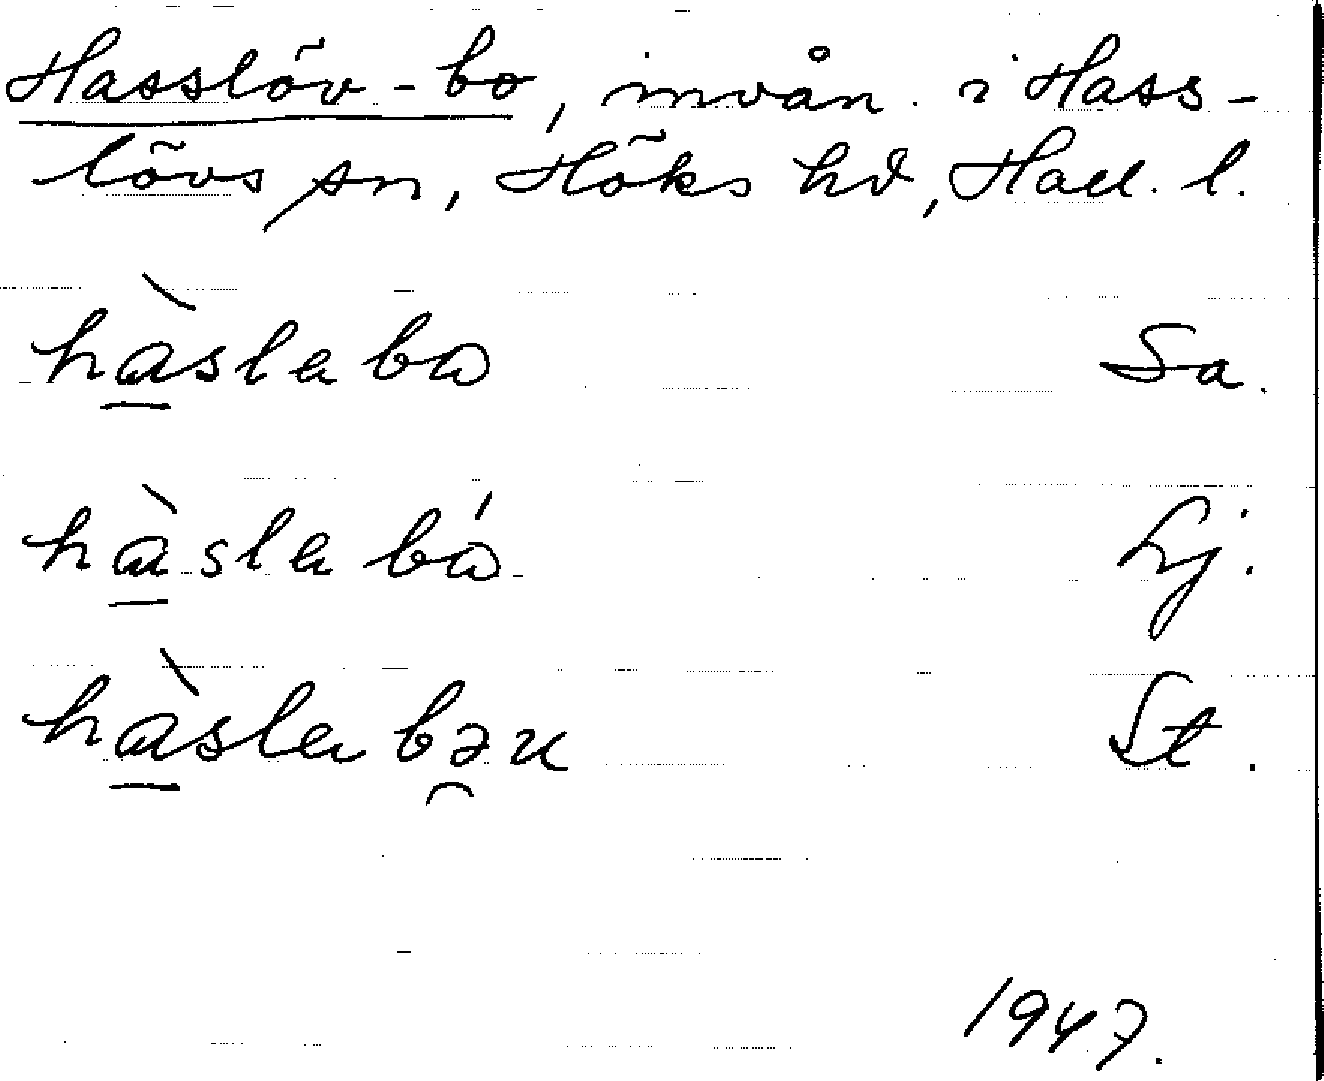 Hasslöv-bo, invån. i Hass-
lövs sn, Höks hd, Hall. l.
hàslabɷ Sa.
hàslabɷ́ Hj.
hàslabəu St.
1947.